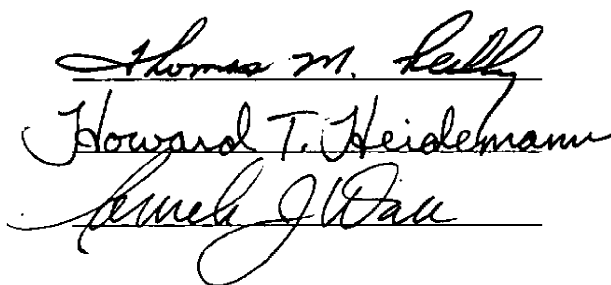 Thomas M. Reilly
Howard T. Heidemann
J